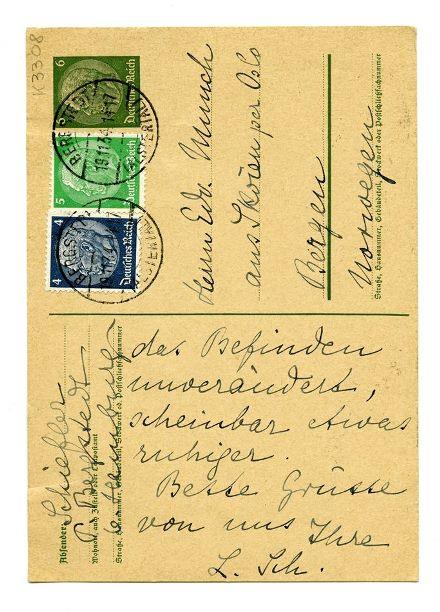 K 3308
6
Deutsches Reich
5
Deutsches Reich
4
Deutsches Reich
Herrn Edv. Munch
aus Skoien per Oslo
Bergen
Norwegen
Straße, Hausnummer, Gebäudeteil, Stockwerk oder Postschließfachnummer
Absender:
Schiefler
Bergstedt
b. Hamburg
Wohnort, auch Zustell- oder Leitpostamt
Straße, Hausnummer, Gebäudeteil, Stockwerk od. Postschließfachnummer
das Befinden
unverändert,
scheinbar etwas
ruhiger.
Beste Grüsse
von uns Ihre
L. Sch.